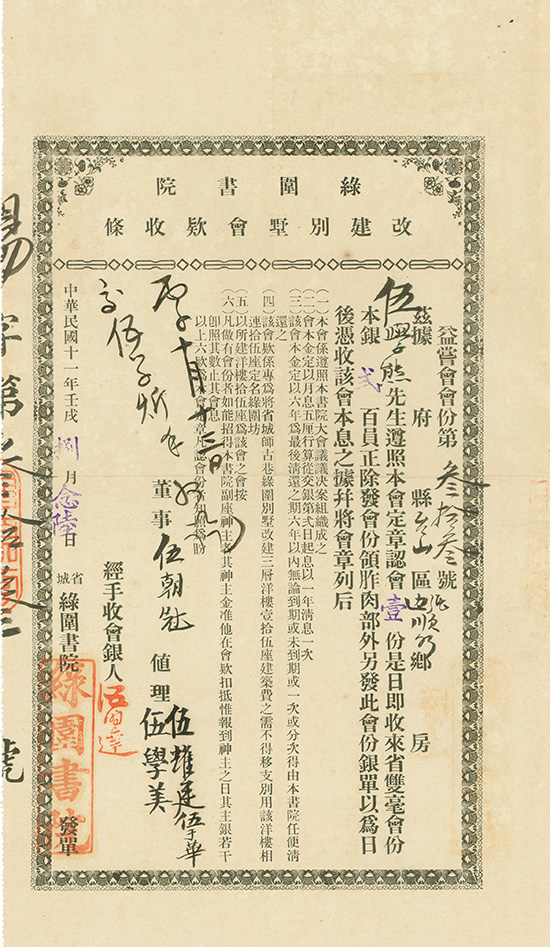 綠圍書院
改建別墅會欵收條
益嘗會會份第叁拾叁號
茲據 府 縣台山區 鄉 房
伍學熊先生遵照本會定章認會壹份是日即收來省雙毫會份
本銀弍百員正除發會份領胙肉部外另發此會份銀單以爲日
後憑收該會本息之據幷將會章列后
(一)本會係遵照本書院大會議議决案組織成之
(二)會本金定以月息五厘行算從交銀第弍日起息以一年淸息一次
(三)該會本金定以六年爲最後淸還之期六年以內無論到期或未到期或一次或分次得由本書院任便淸
還之
(四)該會欵係專爲將省城師古巷綠圍別墅改建三層洋樓壹拾伍座建築費之需不得移支別用該洋樓相
連拾伍座定名綠圍坊
(五)以所建洋樓拾伍座爲該會之會按
(六)凡做有會份者如能招得本書院副座神主者其神主金准他在會欵扣抵惟報到神主之日其主銀若干
卽照其數止其會息
以上六欵爲會章凡認會份者知照爲盼
董事 伍朝 值理 伍雄 伍于華
伍學美
經手收會銀人
中華民國十一年壬戌捌月念陸日
省城綠圍書院發單
綠圍書院
字第 號